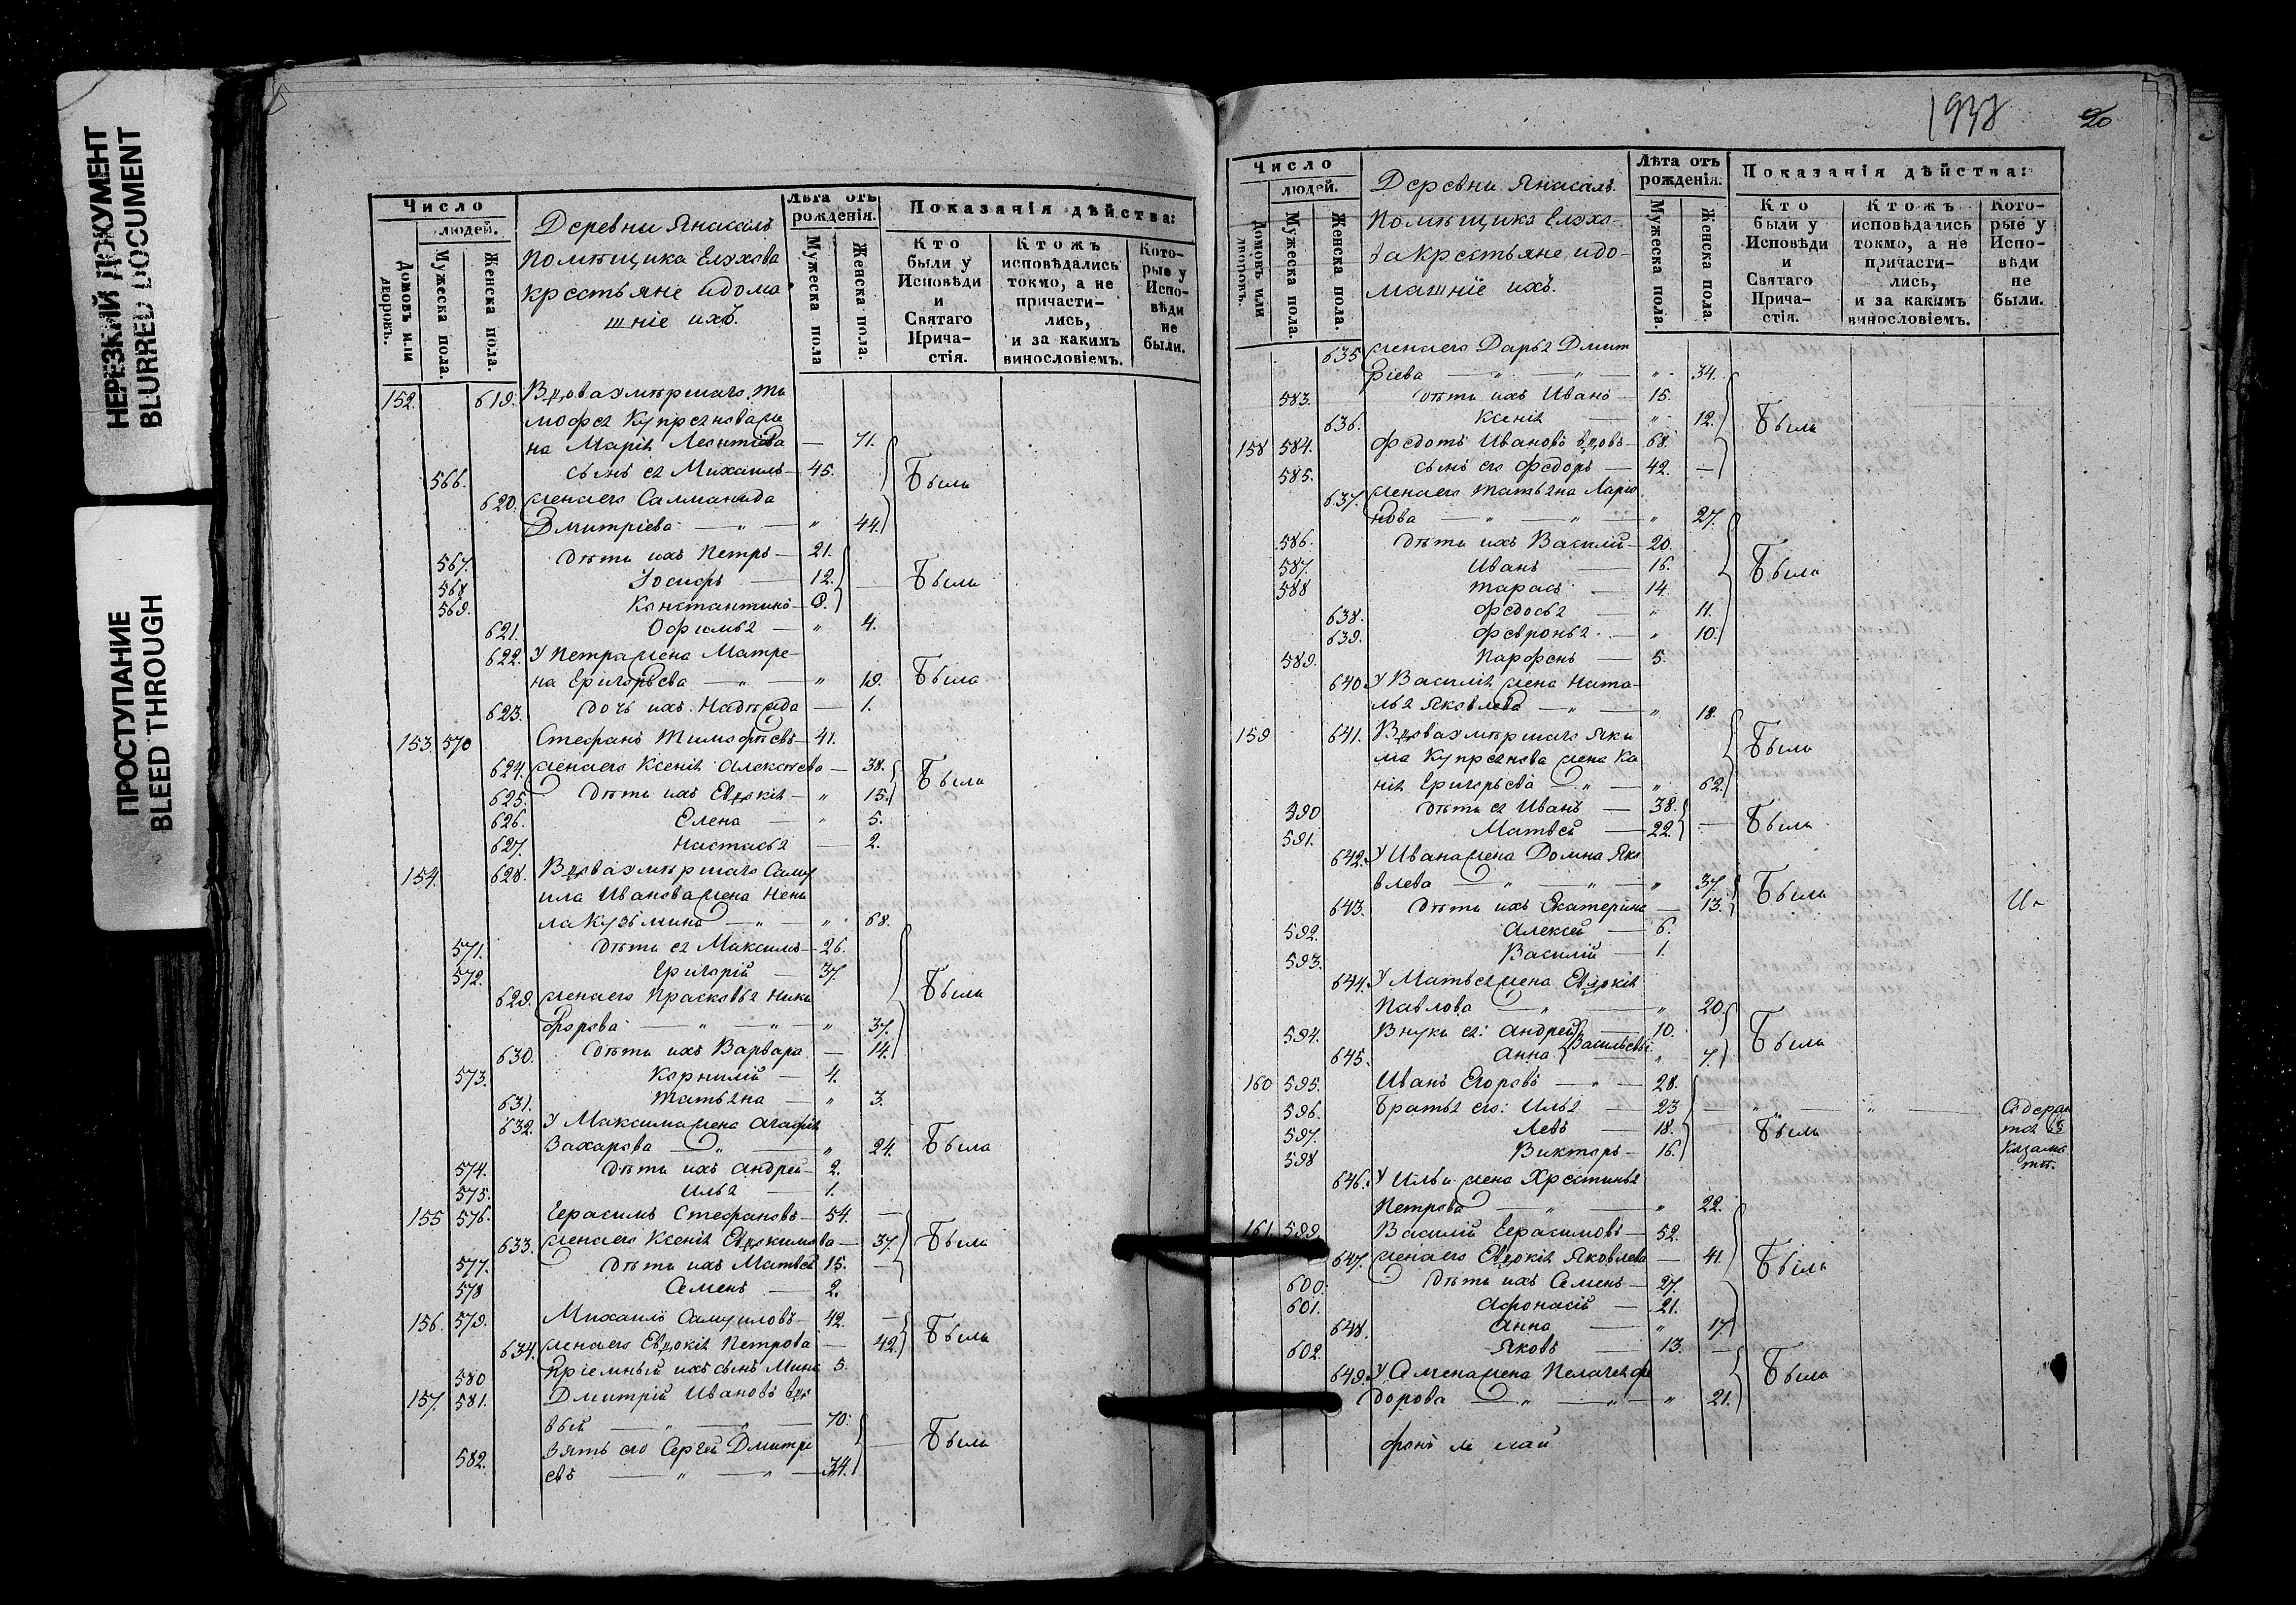 НЕРЕЗКИЙ ДОКУМЕНТ
BLURRED DOCUMENT
ПРОСТУПАНИЕ
BLEED THROUGH
Число
людей.
Домовъ или дворовъ.
Мужеска пола.
Женска пола.
Деревни
Помѣщика Елохова
крестьяне и дома
шніе ихъ.
Лѣта отъ рожденія.
Мужеска пола
Женска пола.
Показанія дѣйства:
Кто были у Исповѣди и Святаго Прича-стія.
Ктожъ исповѣдались токмо, а не причасти-лись, и за какимъ винословіемъ.
Кото-рые у Испо-вѣди не были.
152. 619. Вдова умершаго Ти
мофея Купреянова же
на Марія Леонтіева — 71.
566. сынъ ея Михаилъ — 45. Были
620. жена его Саламанида
Дмитріева — " — " 44.
567. дѣти ихъ Петръ — 21.
568 Іосифъ — 12. Были
569. Константинъ — 9.
621. Офимья — " 4.
622. У Петра жена Матре-
на Григорьева — " — " 19. Была
623. дочь ихъ Надежда — 1.
153. 570 Стефанъ Тимофѣевъ — 41.
624. жена его Ксенія Алексѣева — 38. Были
625. дѣти ихъ Евдокія — " 15.
626. Елена — " 5.
627. Настасья — 2.
154. 628. Вдова умершаго Саму
ила Иванова жена Нени
ла Кузьмина — " — " 68.
571. дѣти ея Максимъ — 26.
572. Григорій — 37.
629. жена его Прасковья Ники Были
форова — " — " — " 37.
630. дѣти ихъ Варвара — 14.
573. Корнилій — 4.
631. Татьяна — " 3.
632. У Максима жена Агафія
Захарова — " — " 24. Была
574. дѣти ихъ Андрей — 2.
575. Илья — 1.
155 576. Герасимъ Стефановъ — 54.
633. жена его Ксенія Евдокимова — 37. Были
577. дѣти ихъ Матвей 15.
578 Семенъ — 2.
156. 579. Михаилъ Самуиловъ — 42.
634. жена его Евдокія Петрова — 42. Были
580 Пріемный ихъ сынъ Мина 5.
157. 581. Дмитрій Ивановъ вдо
вый — " — " — 70.
582. Зять его Сергей Дмитрі Были
евъ — " — " — 34.
1938
20
Число
людей.
Домовъ или дворовъ.
Мужеска пола.
Женска пола.
Деревни
Помѣщика Елохо-
ва крестьяне и до-
машніе ихъ.
Лѣта отъ рожденія.
Мужеска пола.
Женска пола.
Показанія дѣйства:
Кто были у Исповѣди и Святаго Прича-стія.
Ктожъ исповѣдались токмо, а не причасти-лись, и за какимъ винословіемъ.
Кото-рые у Испо-вѣди не были.
635 жена его Дарья Дмит
ріева — " — " — " 34.
583. дѣти ихъ Иванъ — 15.
636. Ксенія — " 12. Были
158 584. Федотъ Ивановъ вдовъ — 68.
585. сынъ его Федоръ — 42.
637. жена его Татьяна Ларіо
нова — " — " — " 27.
586. дѣти ихъ Василій — 20.
587. Иванъ — 16. Были
588 Тарасъ — 14.
638. Федосья — " 11.
639. Февронья — " 10.
589. Парфенъ — 5.
640 У Василія жена Ната-
лья Яковлева — " — " 18.
159 641. Вдова умершаго Яки Были
ма Купреянова жена Ка
нія Григорьева — " — " 62.
590 дѣти ея Иванъ — 38.
591. Матвей — 22. Были
642. У Ивана жена Домна Яко
влева — " — " — " 37. Были
643. дѣти ихъ Екатерина — 13.
592. Алексей — 6.
593. Василій — 1.
644. У Матвея жена Евдокія
Павлова — " — " 20.
594. Внуки ея: Андрей 10. Были
645. Анна Васильевы " 7.
160 595. Иванъ Егоровъ — " — 28.
596. Братья его: Илья — 23 " "
597. Левъ — 18. Были
598 Викторъ — 16.
646. У Ильи жена Хрестинья
Петрова — " — " 22.
161. 599. Василій Герасимовъ — 52.
647. жена его Евдокія Яковлева — 41. Были
600. дѣти ихъ Семенъ — 27.
601. Афонасій — 21.
648. Анна — " 17.
602. Яковъ — 13.
649. У Семена жена Пелагея Фе Были
дорова — " — " — " 21.